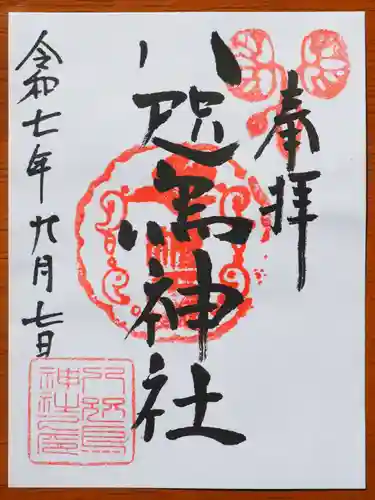 奉拝
八咫烏神社
令和七年九月七日
八咫烏
神社之